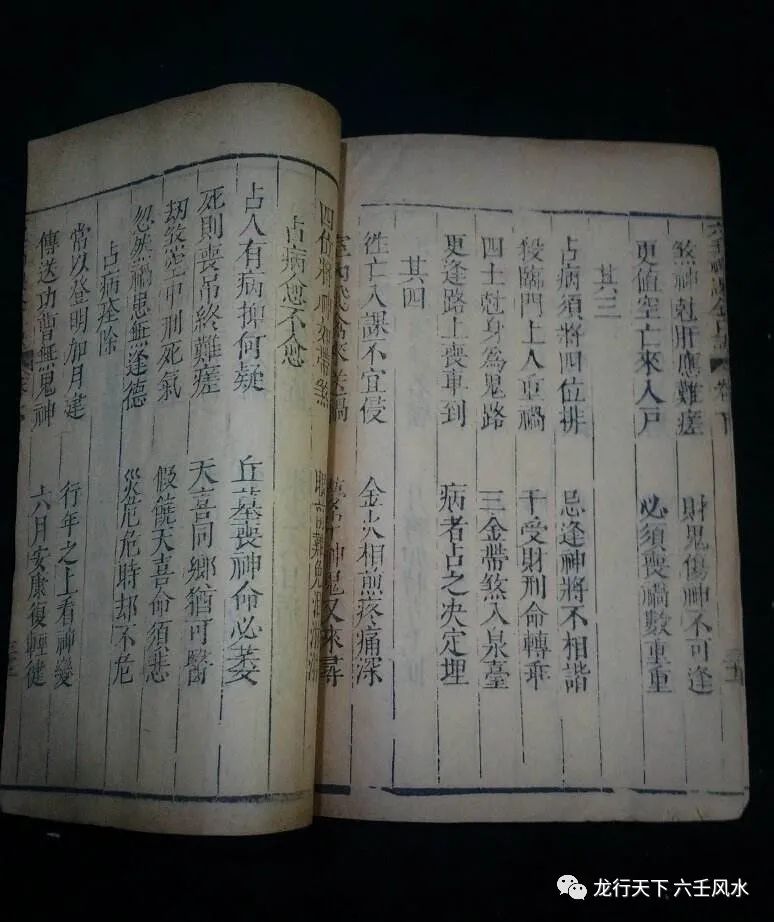 煞神尅肝應難瘥 財鬼傷神不可逢
更值空亡來入戶 必須喪禍數重重
其三
占病須將四位排 忌逢神將不相諧
殺臨門上人重禍 干受財刑命轉乖
四土尅身為鬼路 三金帶煞入泉臺
更逢路上喪車到 病者占之決定埋
其四
徃亡入課不宜侵 金火相煎疼痛深
神鬼又來尋
四位將
占病愈不愈
占人有病擇何疑 丘墓喪神命必萎
死則喪吊終難瘥 天喜同鄉猶可醫
刼煞空中刑死氣 假饒天喜命須悲
忽然禍患無逢德 災厄危時却不危
占病痊除
常以登明加月建 行年之上看神變
傳送功曹無鬼神 六月安康復輕健
龙行天下 六壬风水